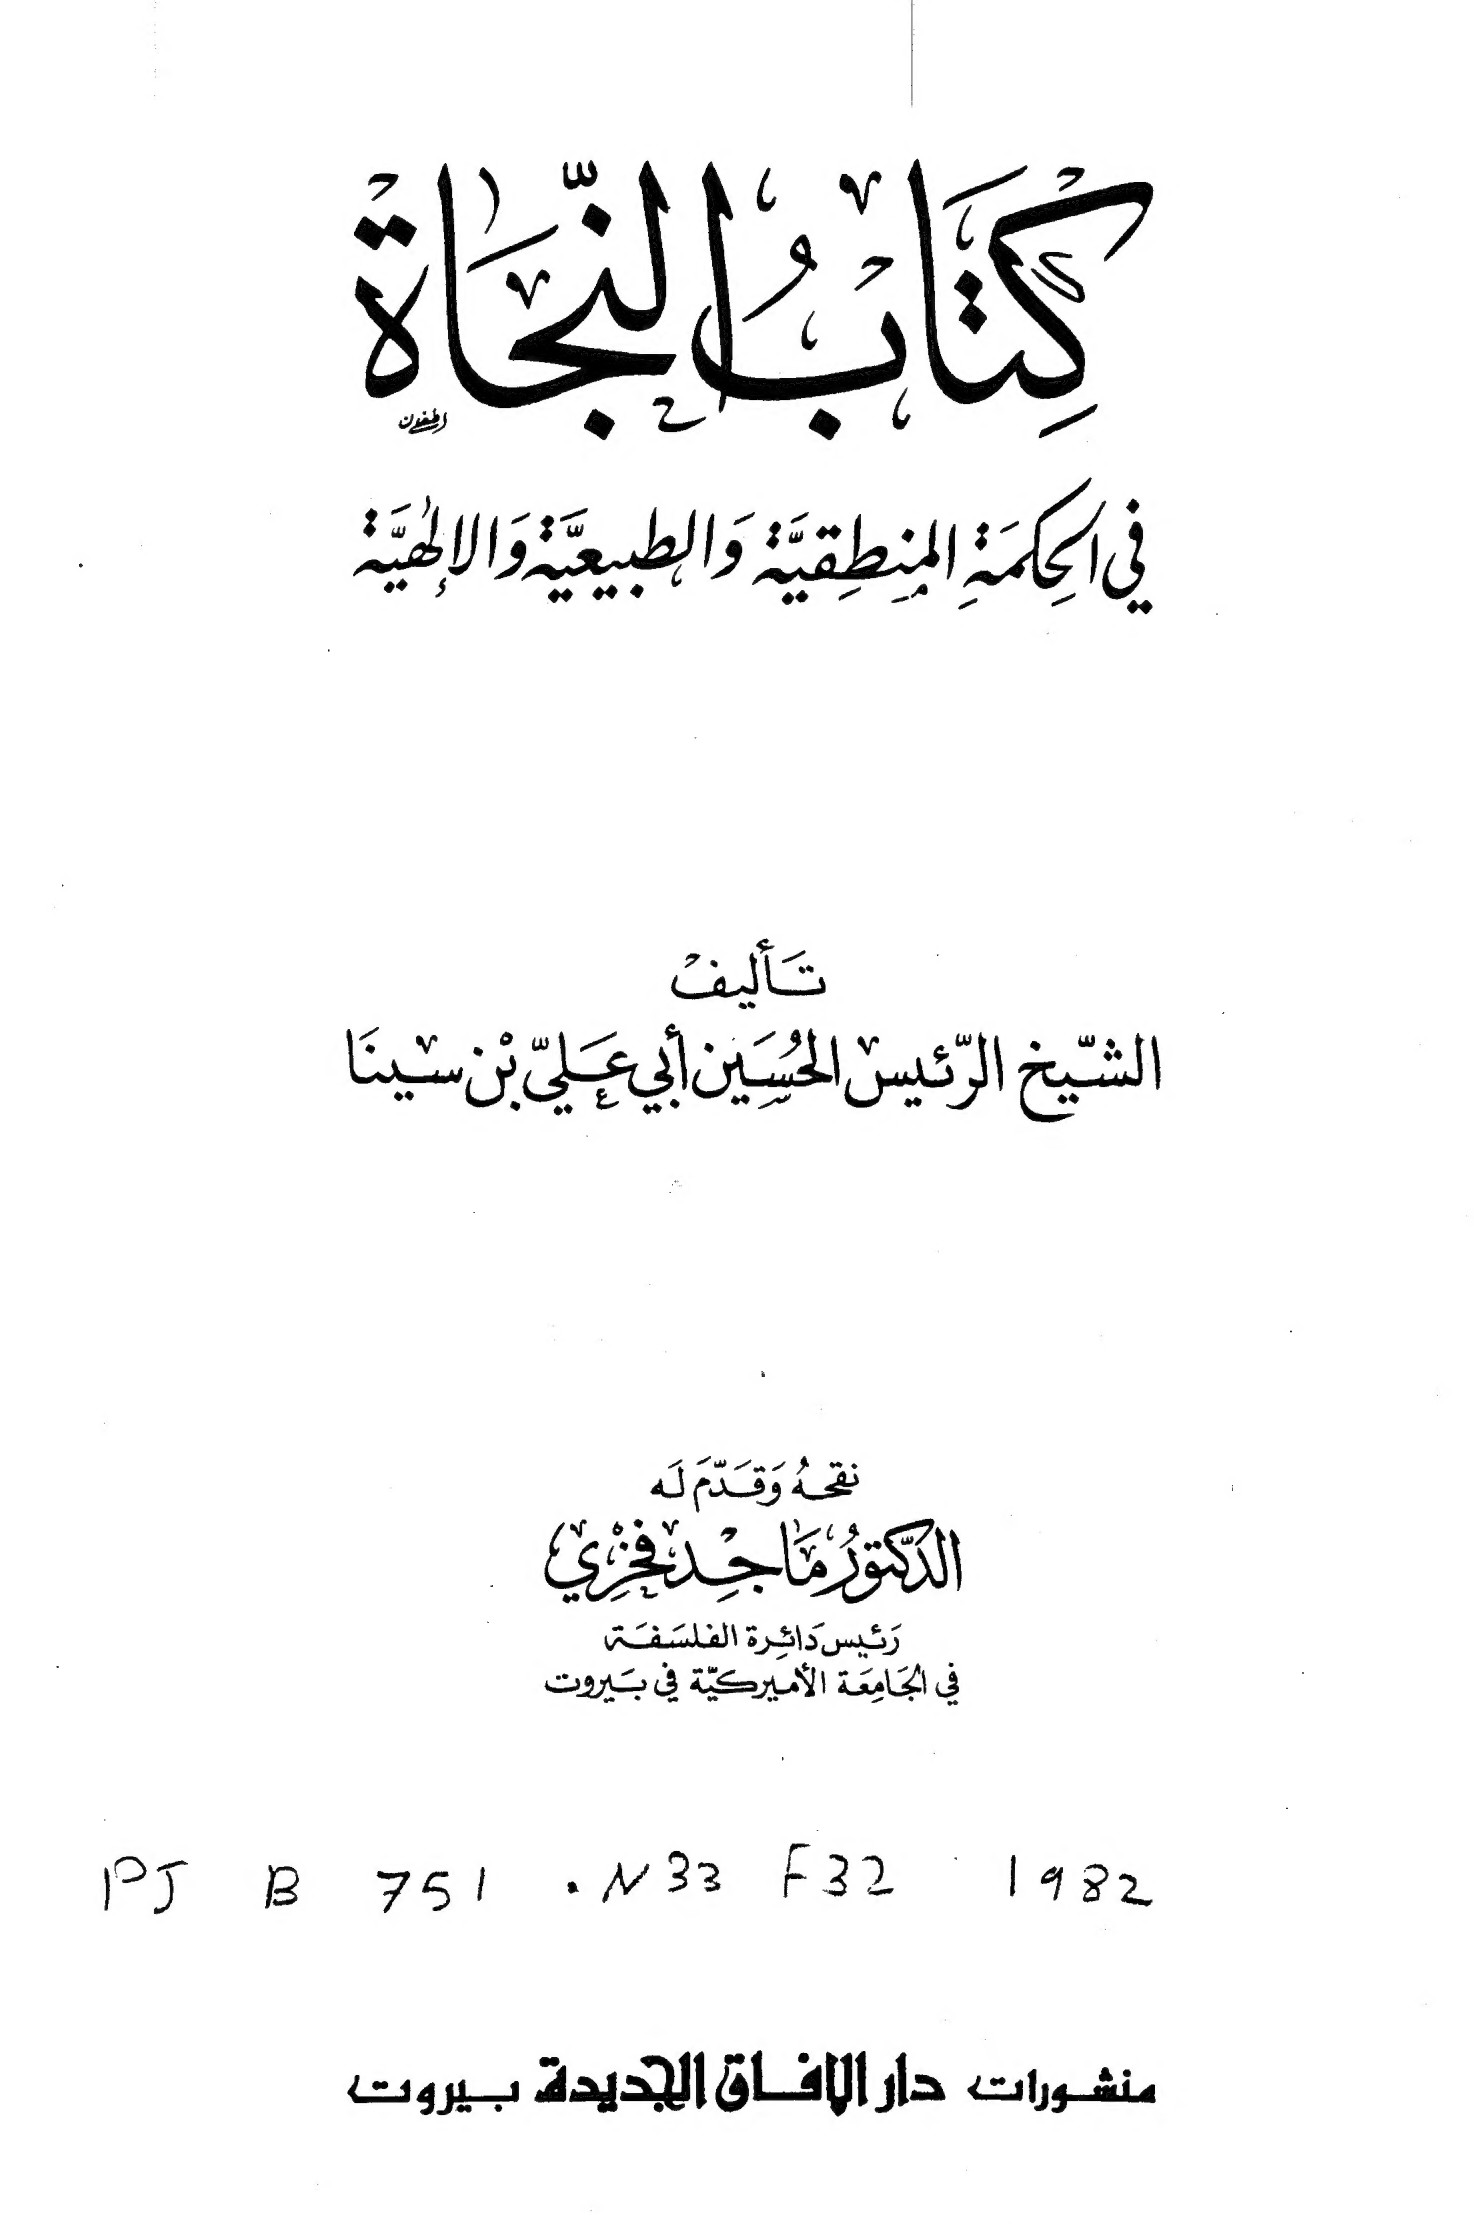 كِتَابُ النَّجَاة
في الحِكمَةِ المنطِقيَّة وَالطبيعيَّة وَالإلهيَّة
تَأليف
الشّيخ الرّئيس الحُسَين أبي عَليّ بْن سينَا
نقحهُ وَقَدَّمَ لَه
الدكتورُ مَاجِد فخري
رَئيس دَائِرة الفلسَفَة
في الجَامِعَة الأميركيَّة في بَيروت
PJ B 751 .N33 F32 1982
منشورات دار الافاق الجديدة بيروت